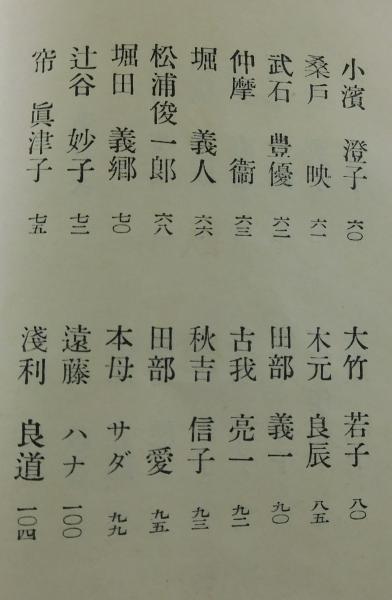 小濱 澄子 六〇
桑戶 映 六一
武石 豊優 六二
仲摩 衞 六三
堀 義人 六六
松浦俊一郎 六八
堀田 義郷 七〇
辻谷 妙子 七二
帘 眞津子 七五
大竹 若子 八〇
木元 良辰 八五
田部 義一 九〇
古我 亮一 九二
秋吉 信子 九三
田部 愛 九五
本母 サダ 九九
遠藤 ハナ 一〇〇
淺利 良道 一〇四